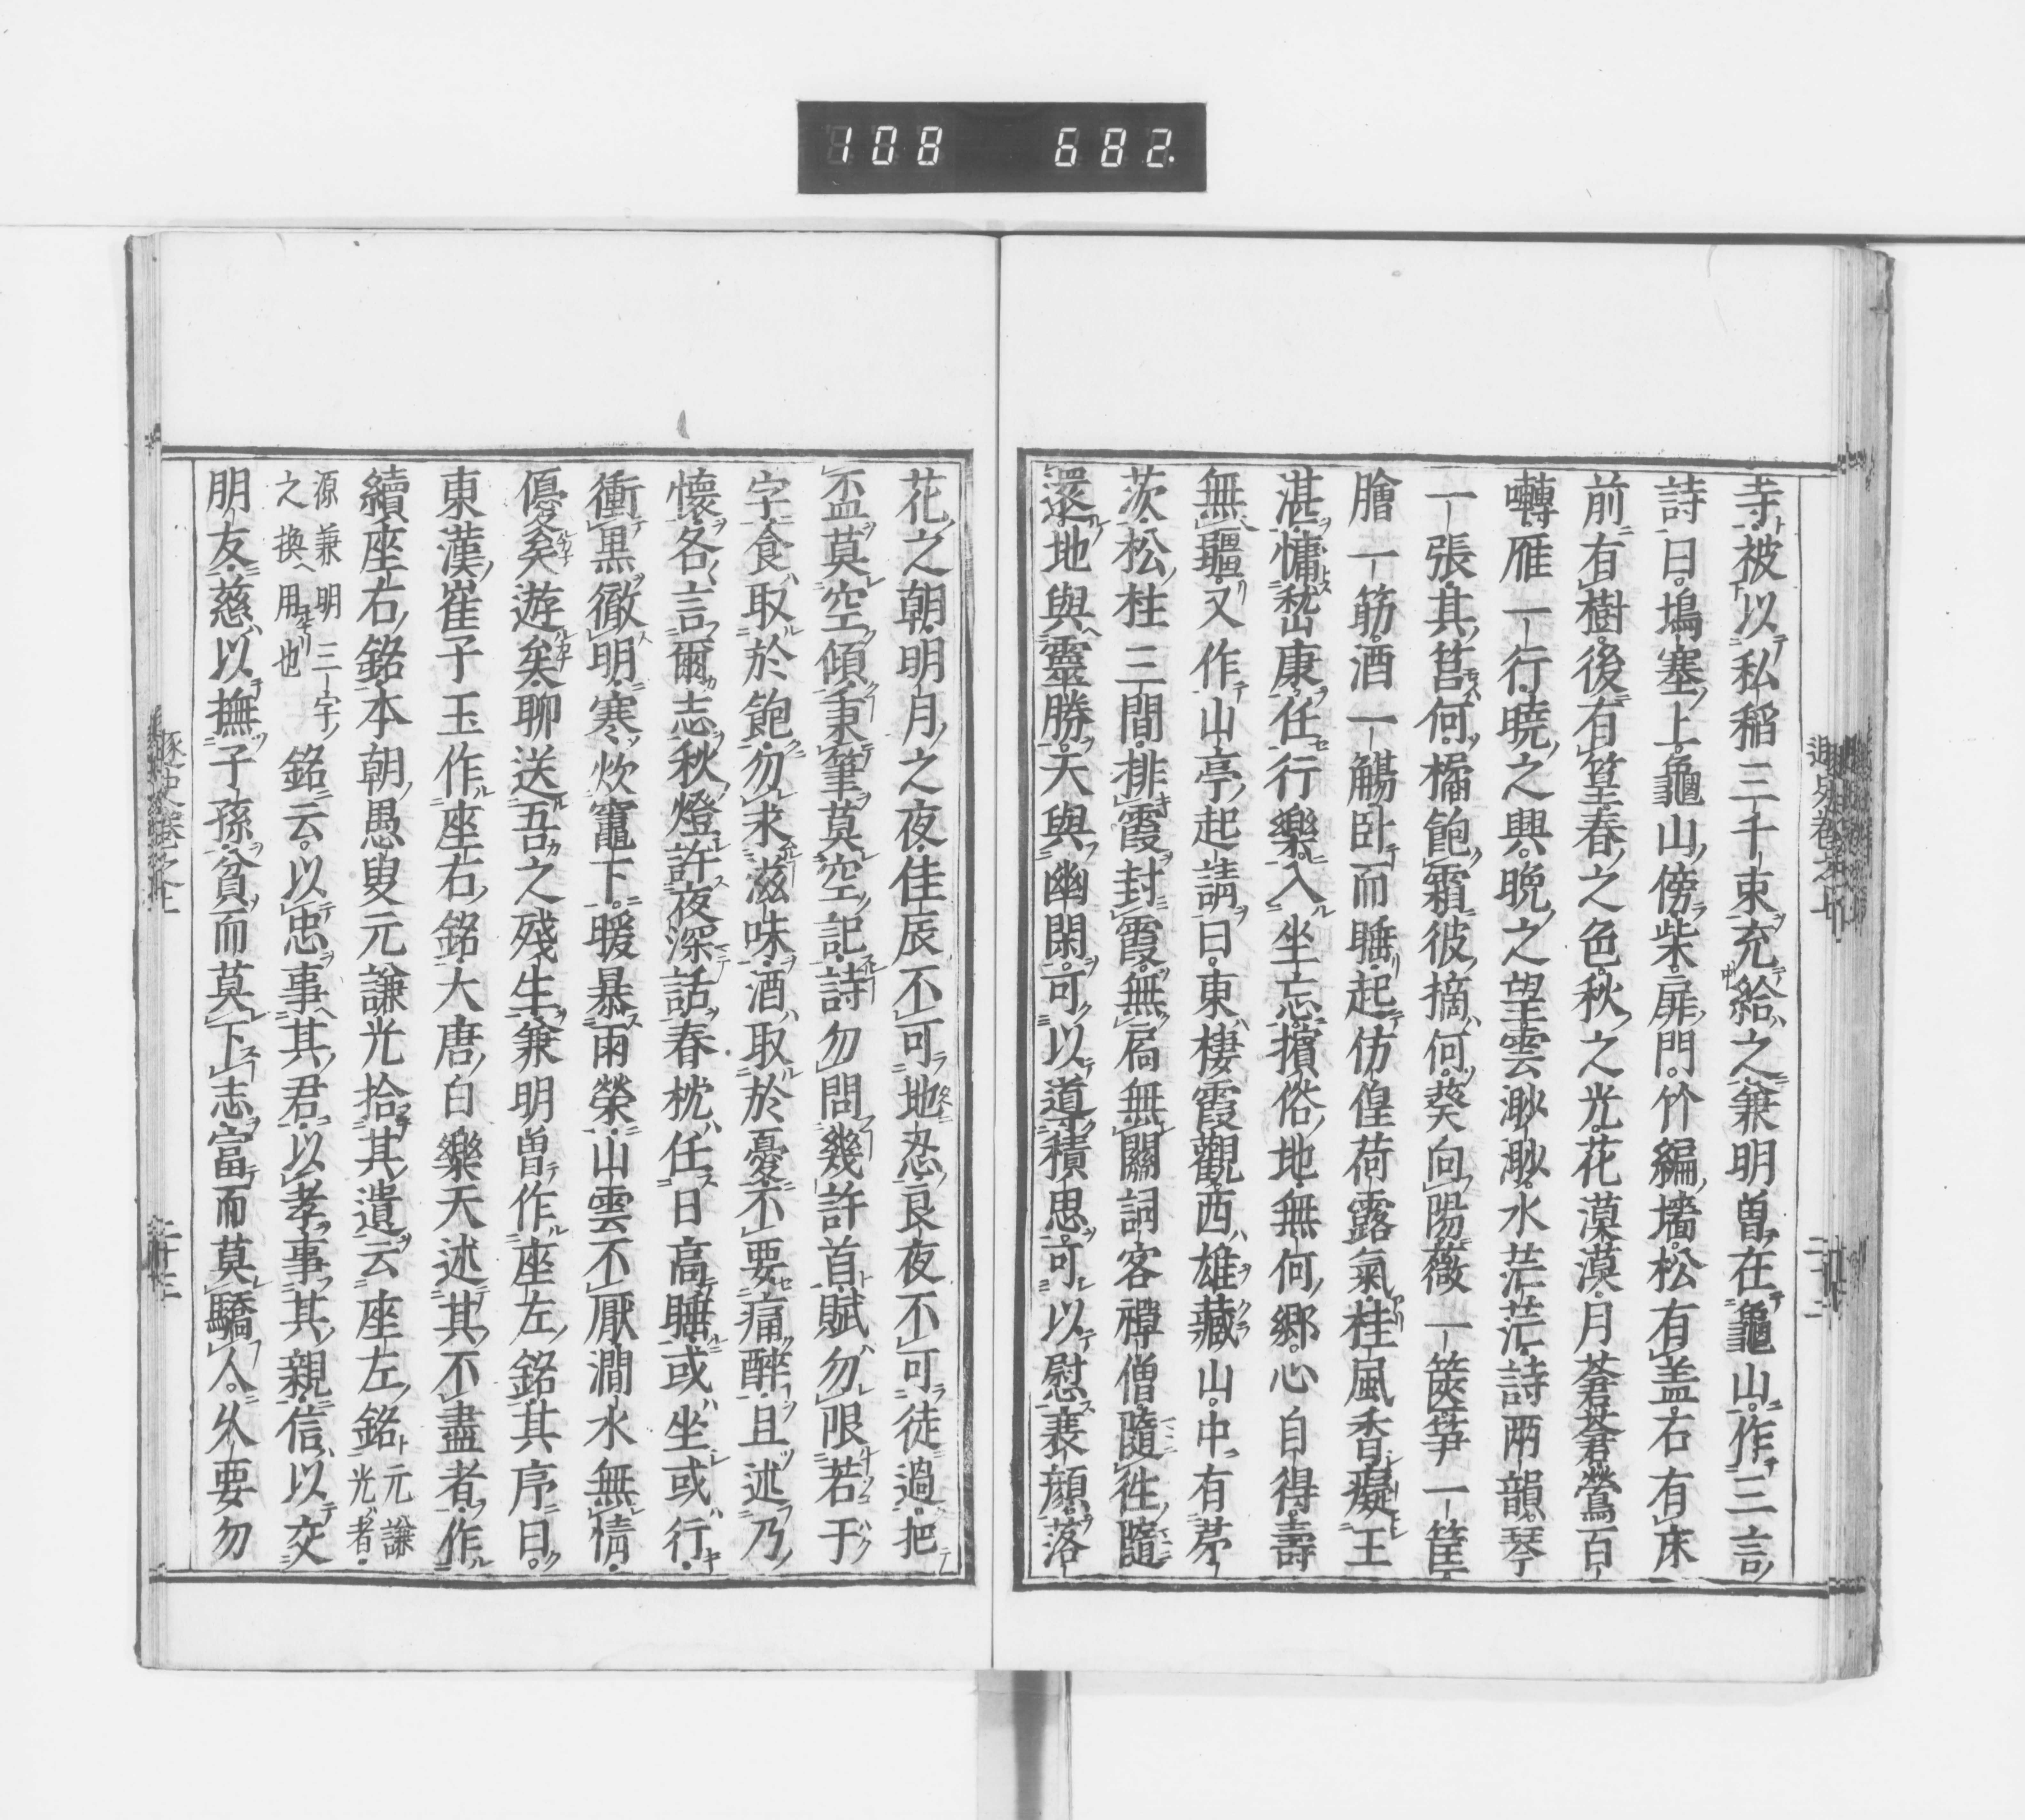 108 682
寺被以私稲三千束充給之兼明曽在龜山作三言
詩曰塢塞上龜山傍柴扉門竹編墻松有盖石有床
前有樹後有篁春之色秋之光花漠漠月蒼蒼鶯百
囀雁一行曉之興晩之望雲渺渺水茫茫詩兩韻琴
一張其筥何橘飽霜彼摘何葵向陽薇一篋笋一筐
膾一筯酒一觴卧而睡起仿偟荷露氣桂風香癡王
湛慵嵇康任行樂入坐忘擯俗地無何郷心自得壽
無疆又作山亭起請曰東棲霞觀西雄藏山中有茅
茨松柱三間排霞封霞無扃無關詞客禪僧隨徃隨
還地與靈勝天與幽閑可以導積思可以慰衰顔落
花之朝明月之夜佳辰不可地忍良夜不可徒過把
盃莫空傾秉筆莫空記詩勿問幾許首賦勿限若于
字食取於飽勿求滋味酒取於憂不要痛醉且述乃
懷各言爾志秋燈許夜深話春枕任日高睡或坐或行
衝黒徹明寒炊竈下暖暴雨榮山雲不厭澗水無情
優矣遊矣聊送吾之殘生兼明曽作座左銘其序曰
東漢崔子玉作座右銘大唐白樂天述其不盡者作
續座右銘本朝愚叟元謙光拾其遺云座左銘元謙光者
源兼明三字之換用也銘云以忠事其君以孝事其親信以交
朋友慈以撫子孫貧而莫下志富而莫驕人久要勿